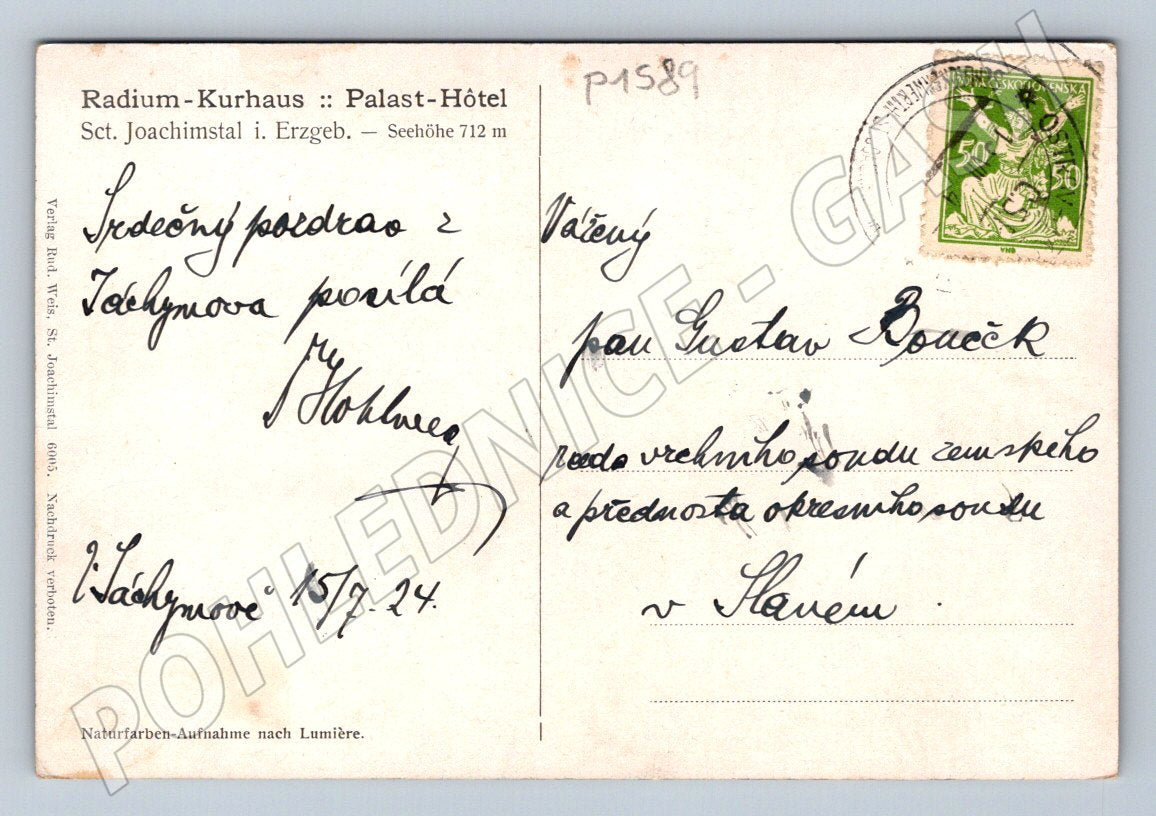 p1589
Radium-Kurhaus :: Palast-Hôtel
Sct. Joachimstal i. Erzgeb. — Seehöhe 712 m
Srdečný pozdrav z
Jáchymova posílá
V Jáchymově 15/7. 24.
Naturfarben-Aufnahme nach Lumière.
Verlag Rud. Weis, St. Joachimstal 6005. Nachdruck verboten.
50 50
Vážený
pan Gustav
rada vrchního soudu zemského
a přednosta okresního soudu
v Slaném
POHLEDNICE - GASH